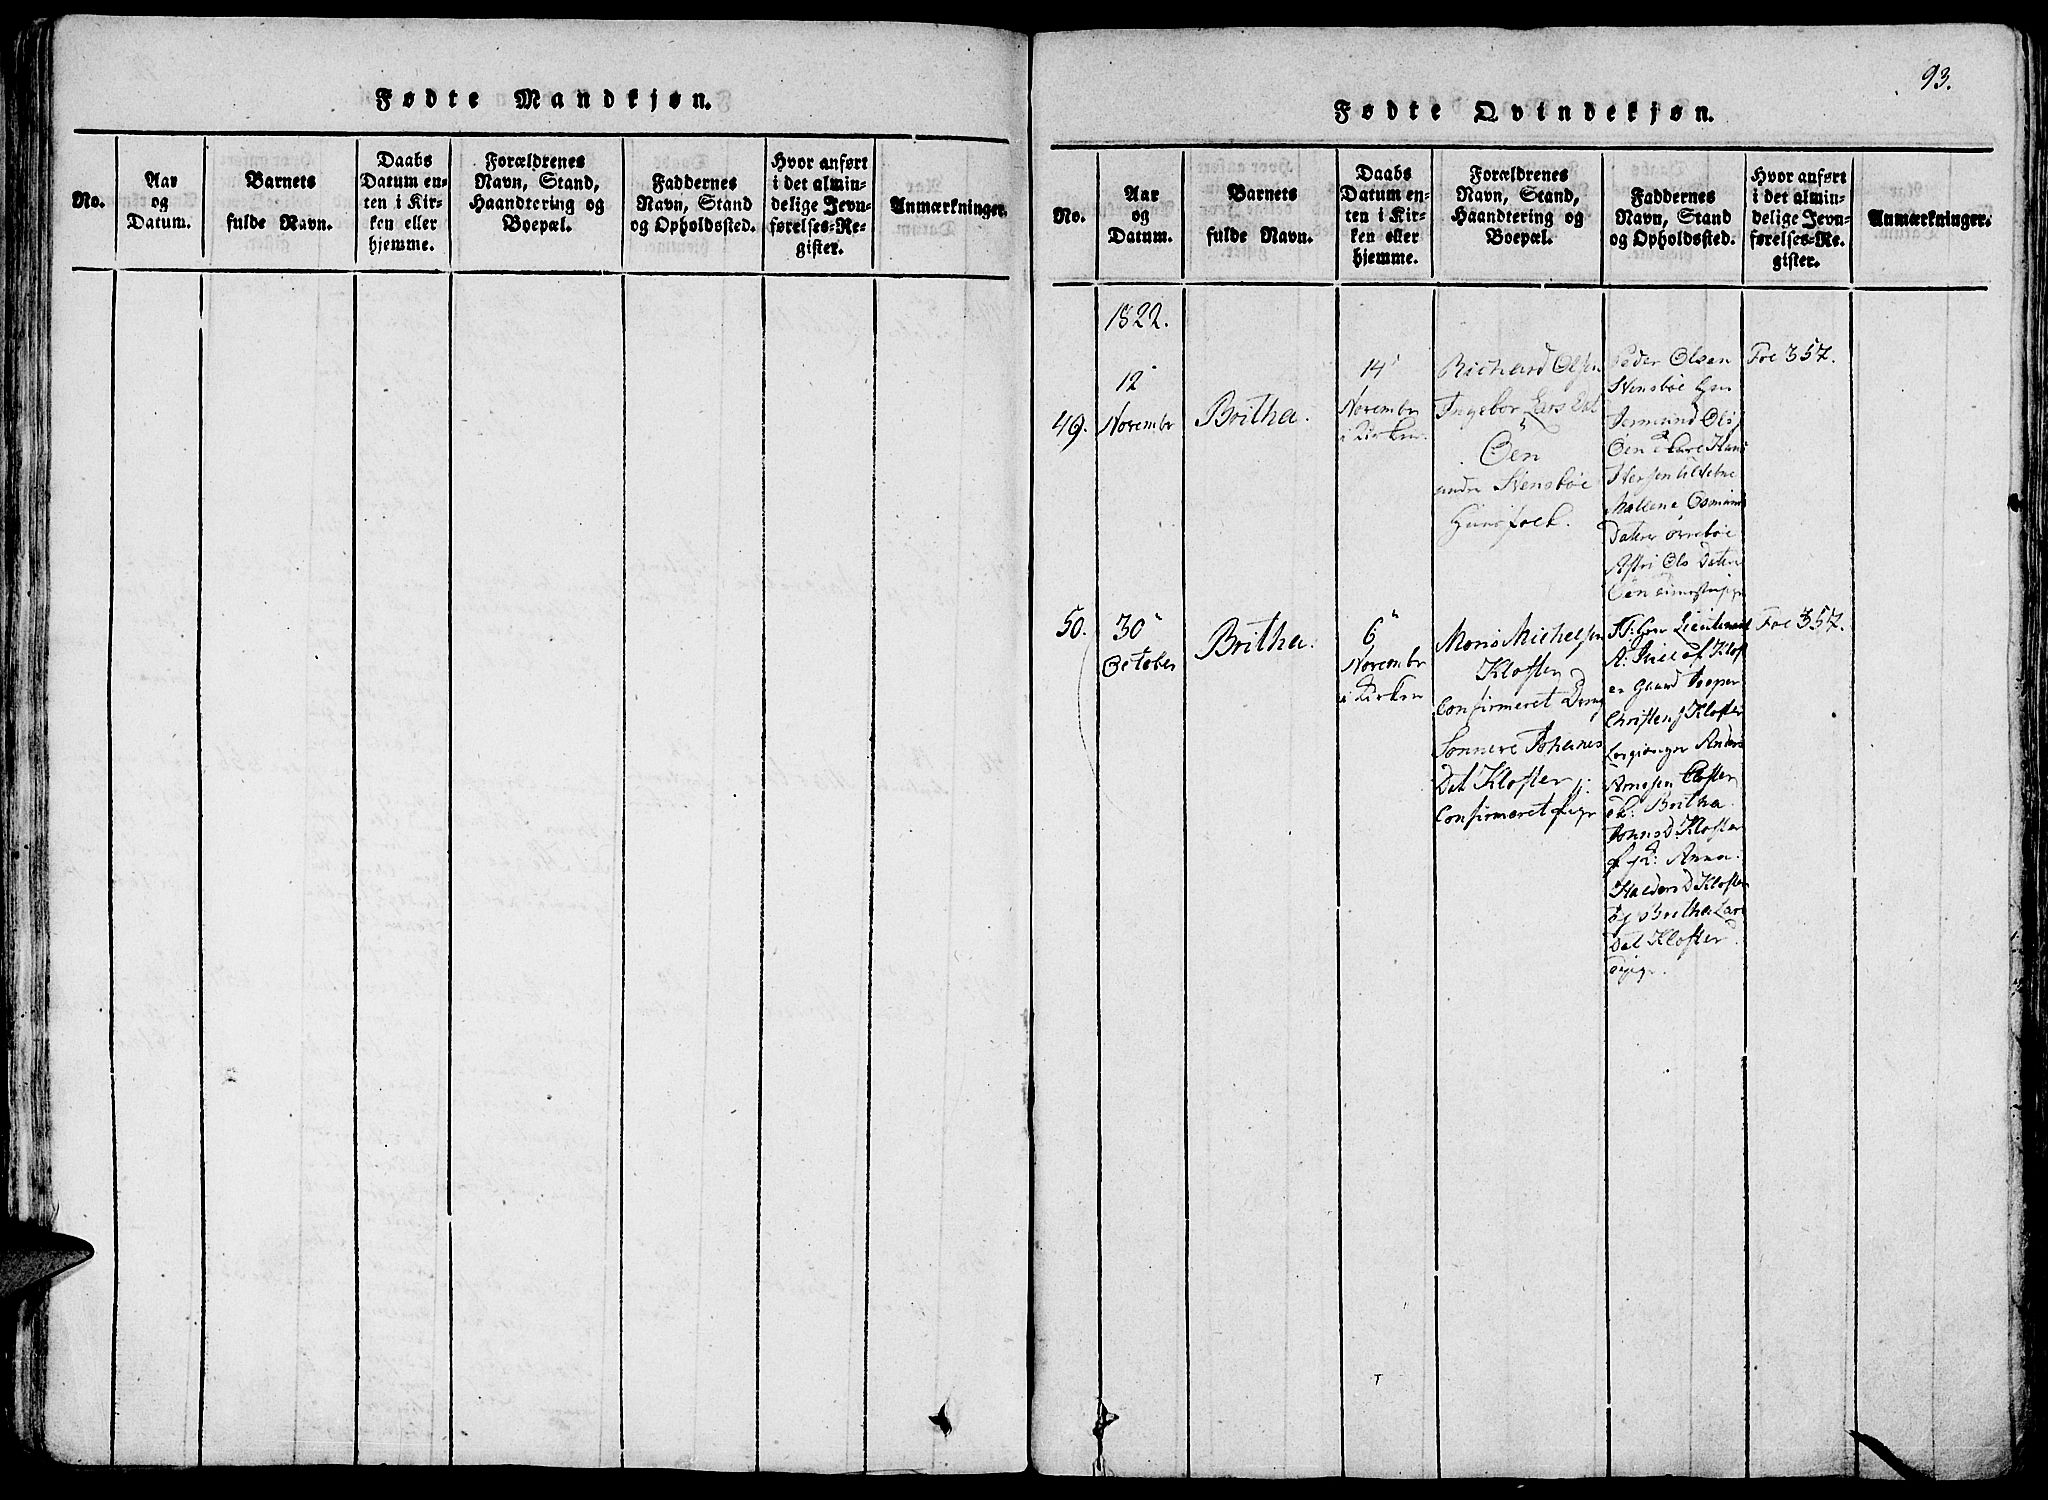 Fødte Mandkjøn.
No.
Aar
og
Datum.
Barnets
fulde Navn.
Daabs
Datum en-
ten i Kir-
ken eller
hjemme.
Forældrenes
Navn, Stand,
Haandtering og
Boepæl.
Faddernes
Navn, Stand
og Opholdssted.
Hvor anført
i det almin-
delige Jevn-
førelses-Re-
gister.
Anmærkninger.
93.
Fødte Qvindekjøn.
No.
Aar
og
Datum.
Barnets
fulde Navn.
Daabs
Datum en-
ten i Kir-
ken eller
hjemme.
Forældrenes
Navn, Stand,
Haandtering og
Boepæl.
Faddernes
Navn, Stand
og Opholdssted.
Hvor anført
i det almin-
delige Jevn-
førelses-Re-
gister.
Anmærkninger.
1822.
49.
12
Novembr
Britha.
14
Novembr
i Kirken.
Richard Olsen
Ingebor Lars Dat
Øen
under Stensbøe
Huusfolk.
Peder Olsen
Stensbøe
Øen
Osmunds
Dater
Astri Ols Dater
Øen
Foe 357.
50.
30
October
Britha.
6
Novembr
i Kirken
Mons Michelsen
Kloster
Confirmeret Dreng
Sønneve Johanes
Dat Kloster
Confirmeret Pige
Lieutenant
af Klost
er Gaard Jesper
Christens Kloster
Anders
Arnesen Closter
Britha
Johnsd Kloster
Anna
Haldors D Kloster
og Britha Lars
Dat Kloster
Foe 357.